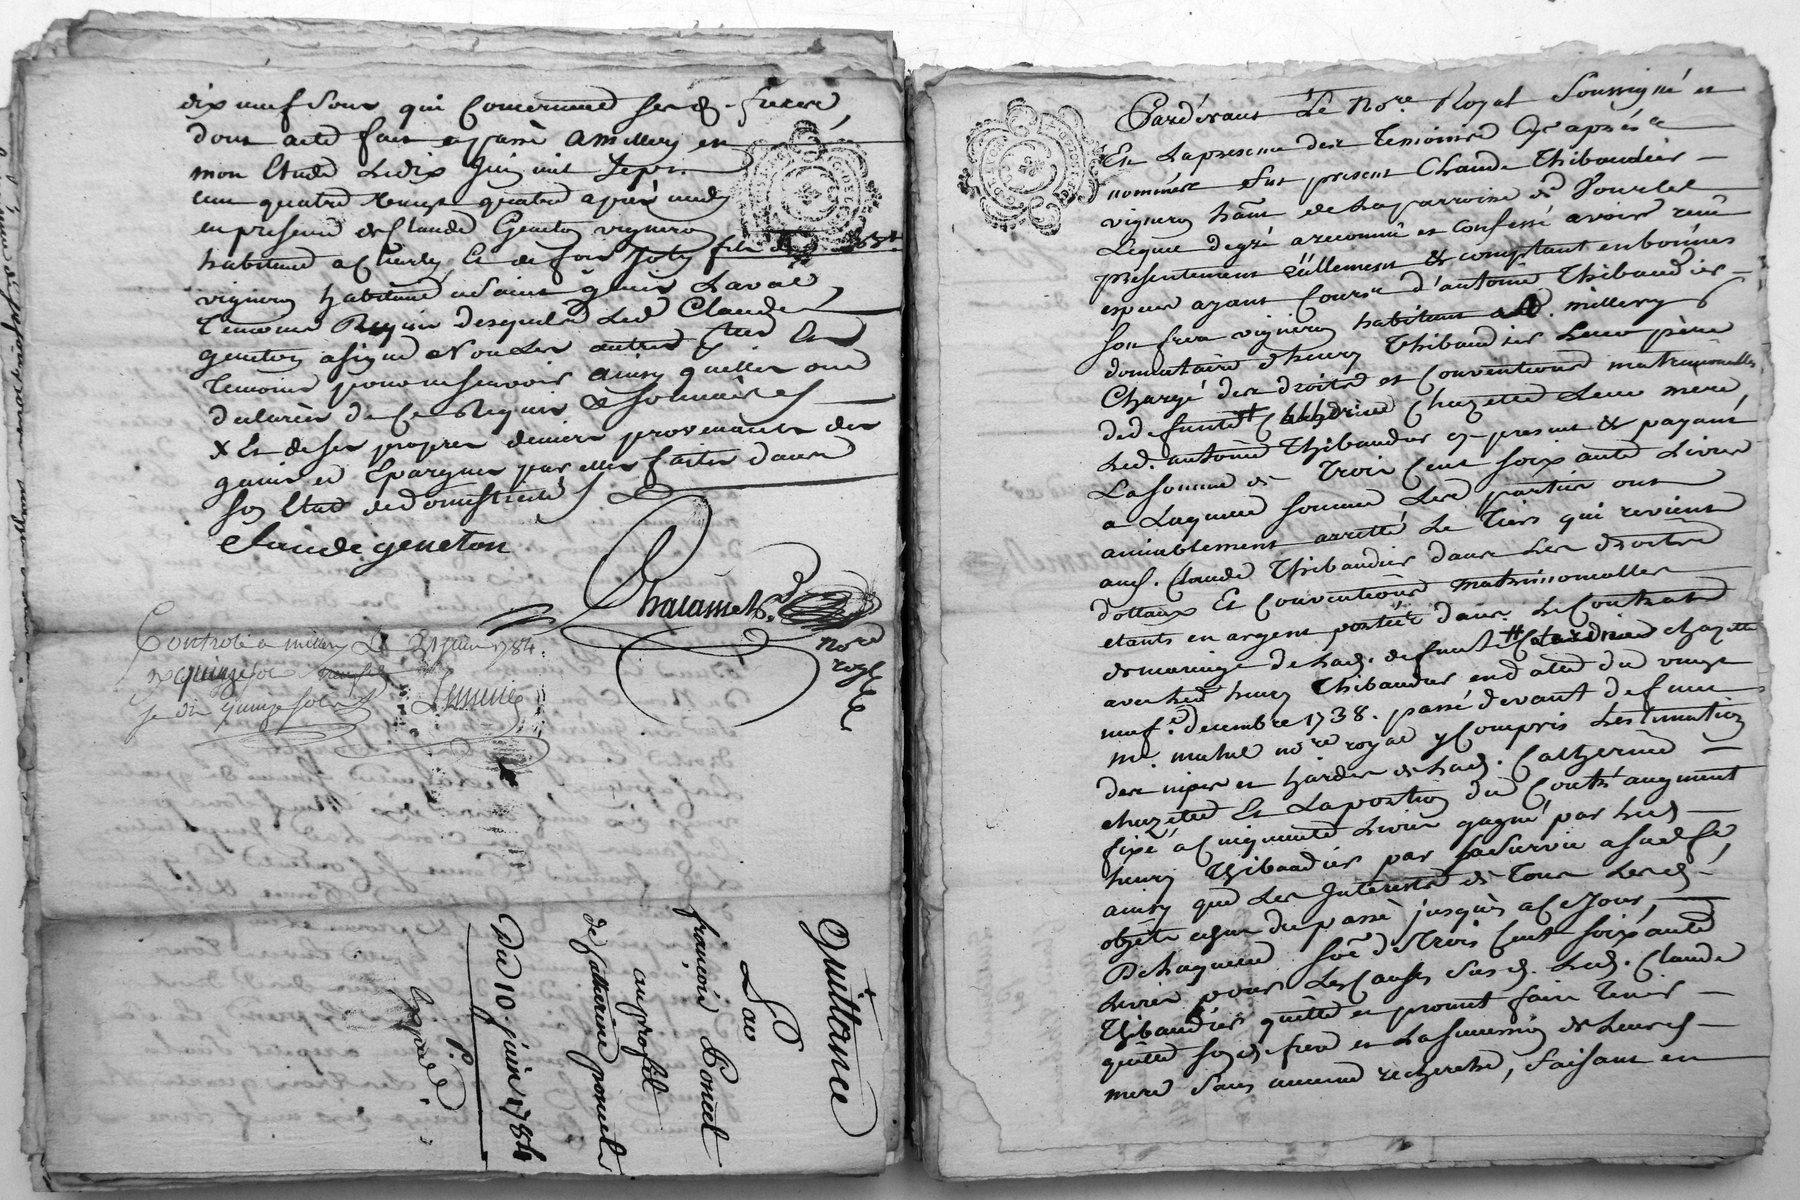 dix neuf sous qui concernent sesd. freres
dont acte fait et passé a millery en
mon Etude Le dix juin mil sept
cens quatre vingt quatre après midy
en presence de Claude Geneton vigneron
habitant a Charly, et de Joly fils
vigneron habitant a Saint genis Laval
temoins Requis desquels Led Claude
geneton a signé Non Les autres et
temoins pour ne sçavoir ainsy qu'elles ont
declarés de ce Requis & sommées
X Et de ses propres deniers provenants des
gains et Epargnes par elles faites dans
son Etat de domesticité
Claude geneton
Chalamel
nore
royal
Controlé a millery Le 21 juin 1784.
quinze sols
Quittance
Par
françois Poncet
au profit
de Catherine poncet
Du 10. juin 1784
Expédié.
Pardevant Le Nore Royal Soussigné et
En La presence des Temoins Cy apres
nommés fut present Claude Thibaudier
vigneron hant de La parroisse de Vourles
Lequel de gré a reconnu et Confessé avoir reçu
presentement réellement & comptant en bonnes
especes ayant Cours d'antoine Thibaudier
son frere vigneron habitant aud. millery
d'henry Thibaudier Leur père
Chargé des droits et conventions matrimonialles
de defunte Catherine Chazette Leur mere
Led. antoine Thibaudier cy present & payant
La somme de Trois Cent soixante Livres
a Laquelle somme Les parties ont
amiablement arretté Le Tiers qui revient
aud. Claude Thibaudier dans Les droits
dottaux Et Conventions matrimonialles
etants en argent portées dans Le Contrat
de mariage de Lad. defunte Catherine chazette
avec Led henry Thibaudier en date du vingt
neuf. decembre 1738. passé devant defunt
me. nore royal y Compris Lestimation
des nipes et hardes de Lad. Catherine
chazette Et La portion du Contr'augment
fixé a Cinquante Livres gagné par Led
henry Thibaudier par sa Survie a sad fe,
ainsy que Les Interests de Tous Lesd.
objets du passé jusques a ce Jour,
De Laquelle so.e de Trois Cent soixante
Livres pour Les Causes Susd. Led. Claude
Thibaudier quitte et promet faire Tenir
quitte sond. frere et La succession de Leurd
mere sans aucune recherche, faisant en